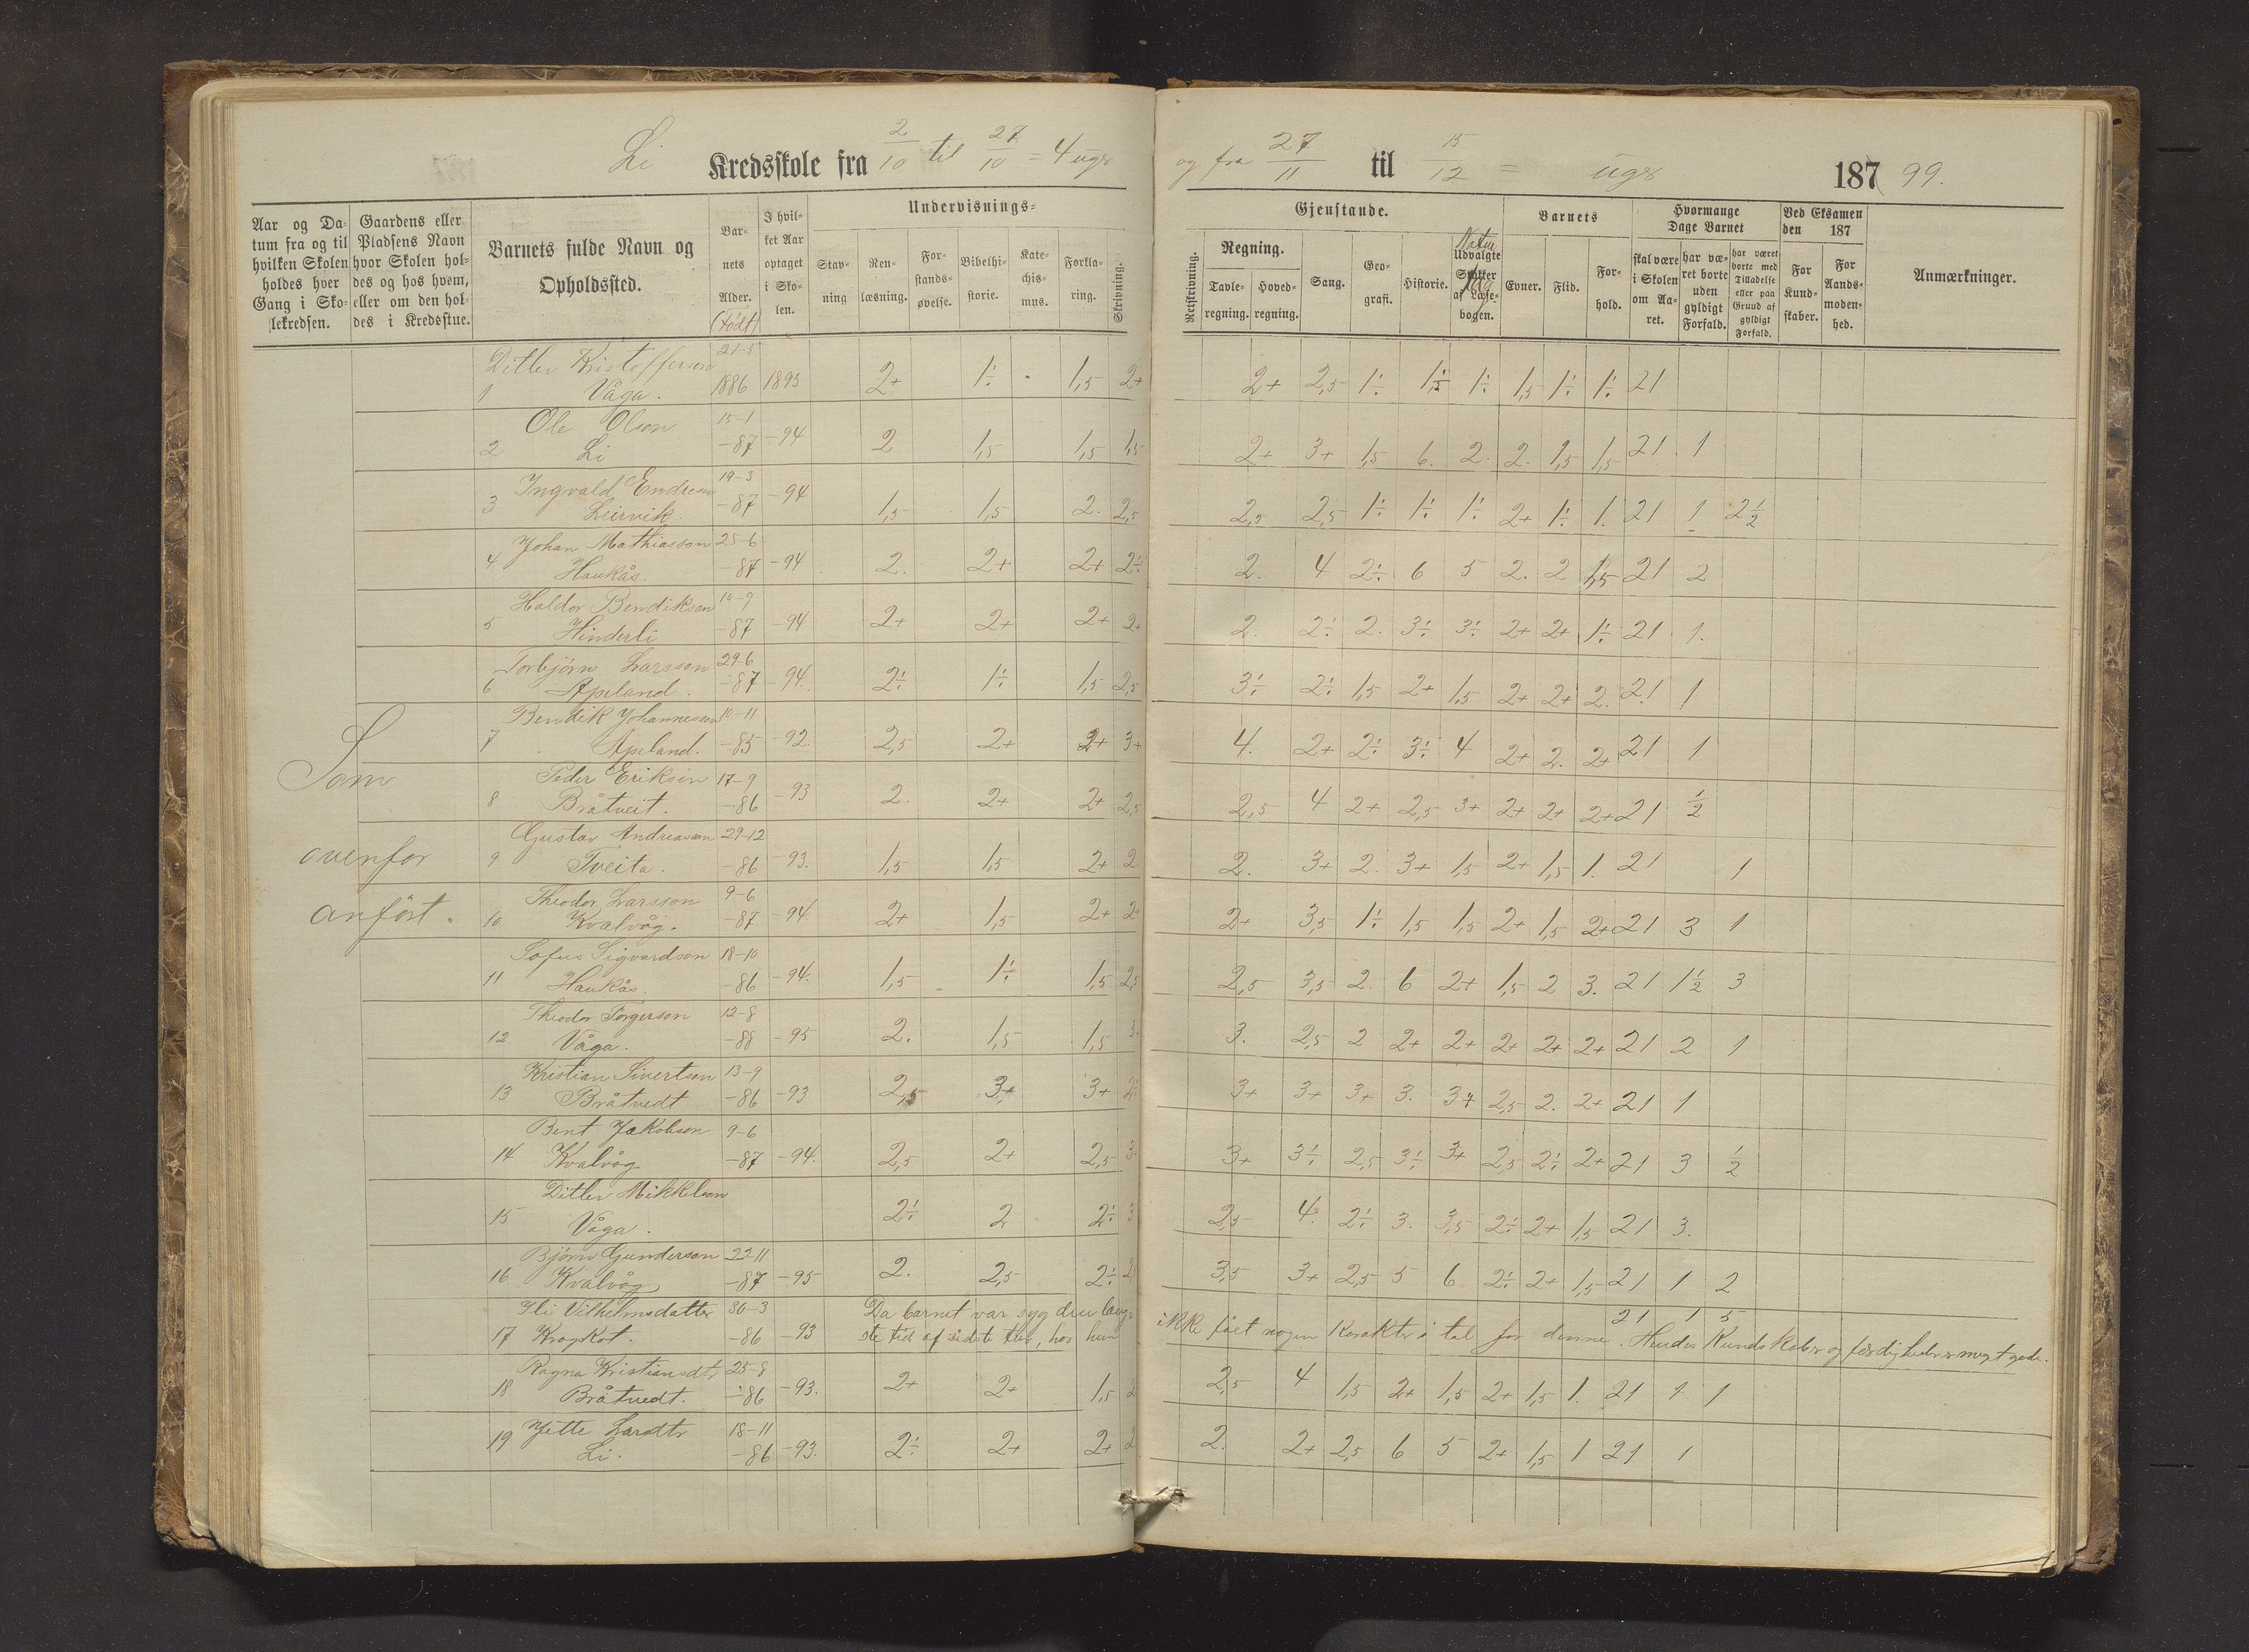 Li Kredsskole fra 2/10 til 27/10 = 4 uger og fra 27/11 til 15/12 = uger 187 99.
Aar og Da-
tum fra og til
hvilken Skolen
holdes hver
Gang i Sko-
lekredsen.
Gaardens eller
Pladsens Navn
hvor Skolen hol-
des og hos hvem,
eller om den hol-
des i Kredsstue.
Barnets fulde Navn og
Opholdssted.
Bar-
nets
Alder.
(født)
I hvil-
ket Aar
optaget
i Sko-
len.
Undervisnings-
Stav-
ning
Ren-
læsning.
For-
stands-
øvelse.
Bibelhi-
storie.
Kate-
chis-
mus.
Forkla-
ring.
Skrivning.
Gjenstande.
Retskrivning.
Regning.
Tavle-
regning.
Hoved-
regning.
Sang.
Geo-
grafi.
Historie.
Natur
Udvalgte
Stykker
af Læse-
bogen.
Barnets
Evner.
Flid.
For-
hold.
Hvormange
Dage Barnet
skal være
i Skolen
om Aa-
ret.
har væ-
ret borte
uden
gyldigt
Forfald.
har været
borte med
Tilladelse
eller paa
Grund af
gyldigt
Forfald.
Ved Eksamen
den 187
For
Kund-
skaber.
For
Aands-
moden-
hed.
Anmærkninger.
Som
ovenfor
anført.
Ditlev Kristofferson 21-5
1 Våga. 1886 1893 2+ 1÷ 1,5 2+ 2+ 2,5 1÷ 1,5 1÷ 1,5 1÷ 1÷ 21
Ole Olson 15-1
2 Li -87 -94 2 1,5 1,5 1,5 2+ 3+ 1,5 6. 2. 2. 1,5 1,5 21 1
Ingvald Endreson 19-3
3 Leirvik -87 -94 1,5 1,5 2. 2,5 2,5 2,5 1÷ 1÷ 1÷ 2+ 1÷ 1. 21 1 2½
Johan Mathiasson 25-6
4 Haukås. -87 -94 2. 2+ 2+ 2÷ 2. 4 2÷ 6 5 2. 2 1,5 21 2
Haldor Bendikson 10-9
5 Hinderli -87 -94 2+ 2+ 2+ 2+ 2. 2÷ 2. 3÷ 3÷ 2+ 2+ 1÷ 21 1.
Torbjørn Larsson 29-6
6 Apeland. -87 -94. 2÷ 1÷ 1,5 2,5 3÷ 2÷ 1,5 2+ 1,5 2+ 2+ 2. 21 1
Bendik Johanneson 10-11
7 Apeland. -85 -92 2,5 2+ 2+ 3+ 4. 2+ 2÷ 3÷ 4 2+ 2. 2+ 21 1
Peder Erikson 17-9
8 Bråtveit. -86 -93 2. 2+ 2+ 2,5 2,5 4 2+ 2,5 3+ 2+ 2+ 2+ 21 ½
Gustav Andreason 29-12
9 Tveita. -86 -93. 1,5 1,5 2+ 2 2. 3+ 2. 3+ 1,5 2+ 1,5 1. 21 1
Theodor Larsson 9-6
10 Kvalvåg. -87 -94 2+ 1,5 2+ 2+ 2+ 3,5 1÷ 1,5 1,5 2+ 1,5 2+ 21 3 1
Sofus Sigvardson 18-10
11 Haukås. -86 -94. 1,5 1÷ 1,5 2,5 2,5 3,5 2. 6 2+ 1,5 2 3. 21 1½ 3
Theodor Torgerson 12-8
12 Våga. -88 -95 2. 1,5 1,5 3. 2,5 2 2+ 2+ 2+ 2+ 2+ 21 2 1
Kristian Sivertson 13-9
13 Bråtvedt -86 -93 2,5 3+ 3+ 3+ 3+ 3+ 3. 3+ 2,5 2. 2+ 21 1
Bent Jakobson 9-6
14 Kvalvåg. -87 -94. 2,5 2+ 2,5 3+ 3÷ 2,5 3÷ 3+ 2,5 2÷ 2+ 21 3 ½
Ditlev Mikkelson
15 Våga. 2÷ 2 2÷ 3 2,5 4. 2÷ 3. 3,5 2÷ 2+ 1,5 21 3.
Bjørn Gunderson 22-11
16 Kvalvåg -87 -95 2. 2,5 2÷ 3,5 3+ 2,5 5 6 2÷ 2+ 1,5 21 1 2
Vilhelmsdatter 30-3 Da barnet var syg den læng- 21 1 5
17 -86 -93 ste tid af sidste del, har hun ikke fået nogen karakter i tal for denne. Hendes Kundskaber og færdigheder er meget gode.
Ragna Kristiansdtr 25-8
18 Bråtvedt. -86 -93. 2+ 2+ 1,5 2 2,5 4 1,5 2+ 1,5 2+ 1,5 1. 21 1 1
Jette Larsdtr 18-11
19 Li. -86 -93. 2÷ 2+ 2+ 2 2. 2+ 2,5 6 5 2+ 1,5 1 21 1